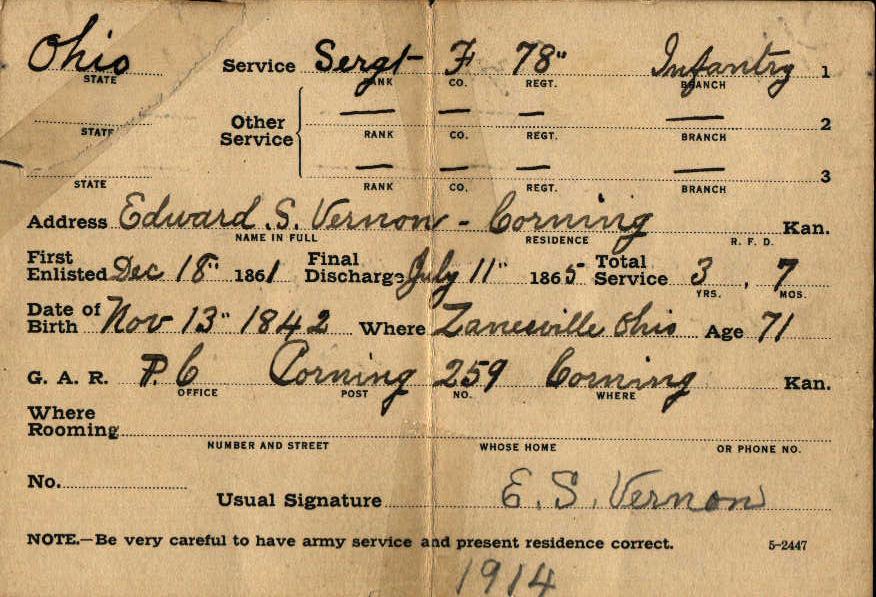 Ohio Service Sergt F 78" Infantry 1
STATE RANK CO. REGT. BRANCH
Other Service — — — — 2
STATE RANK CO. REGT. BRANCH
— — — — 3
STATE RANK CO. REGT. BRANCH
Address Edward S. Vernon - Corning Kan.
NAME IN FULL RESIDENCE R. F. D.
First Enlisted Dec 18" 1861 Final Discharge July 11" 1865 Total Service 3, 7
YRS. MOS.
Date of Birth Nov 13" 1842 Where Zanesville Ohio Age 71
G. A. R. P. C Corning 259 Corning Kan.
OFFICE POST NO. WHERE
Where Rooming
NUMBER AND STREET WHOSE HOME OR PHONE NO.
No.
Usual Signature E. S. Vernon
NOTE.—Be very careful to have army service and present residence correct. 5-2447
1914